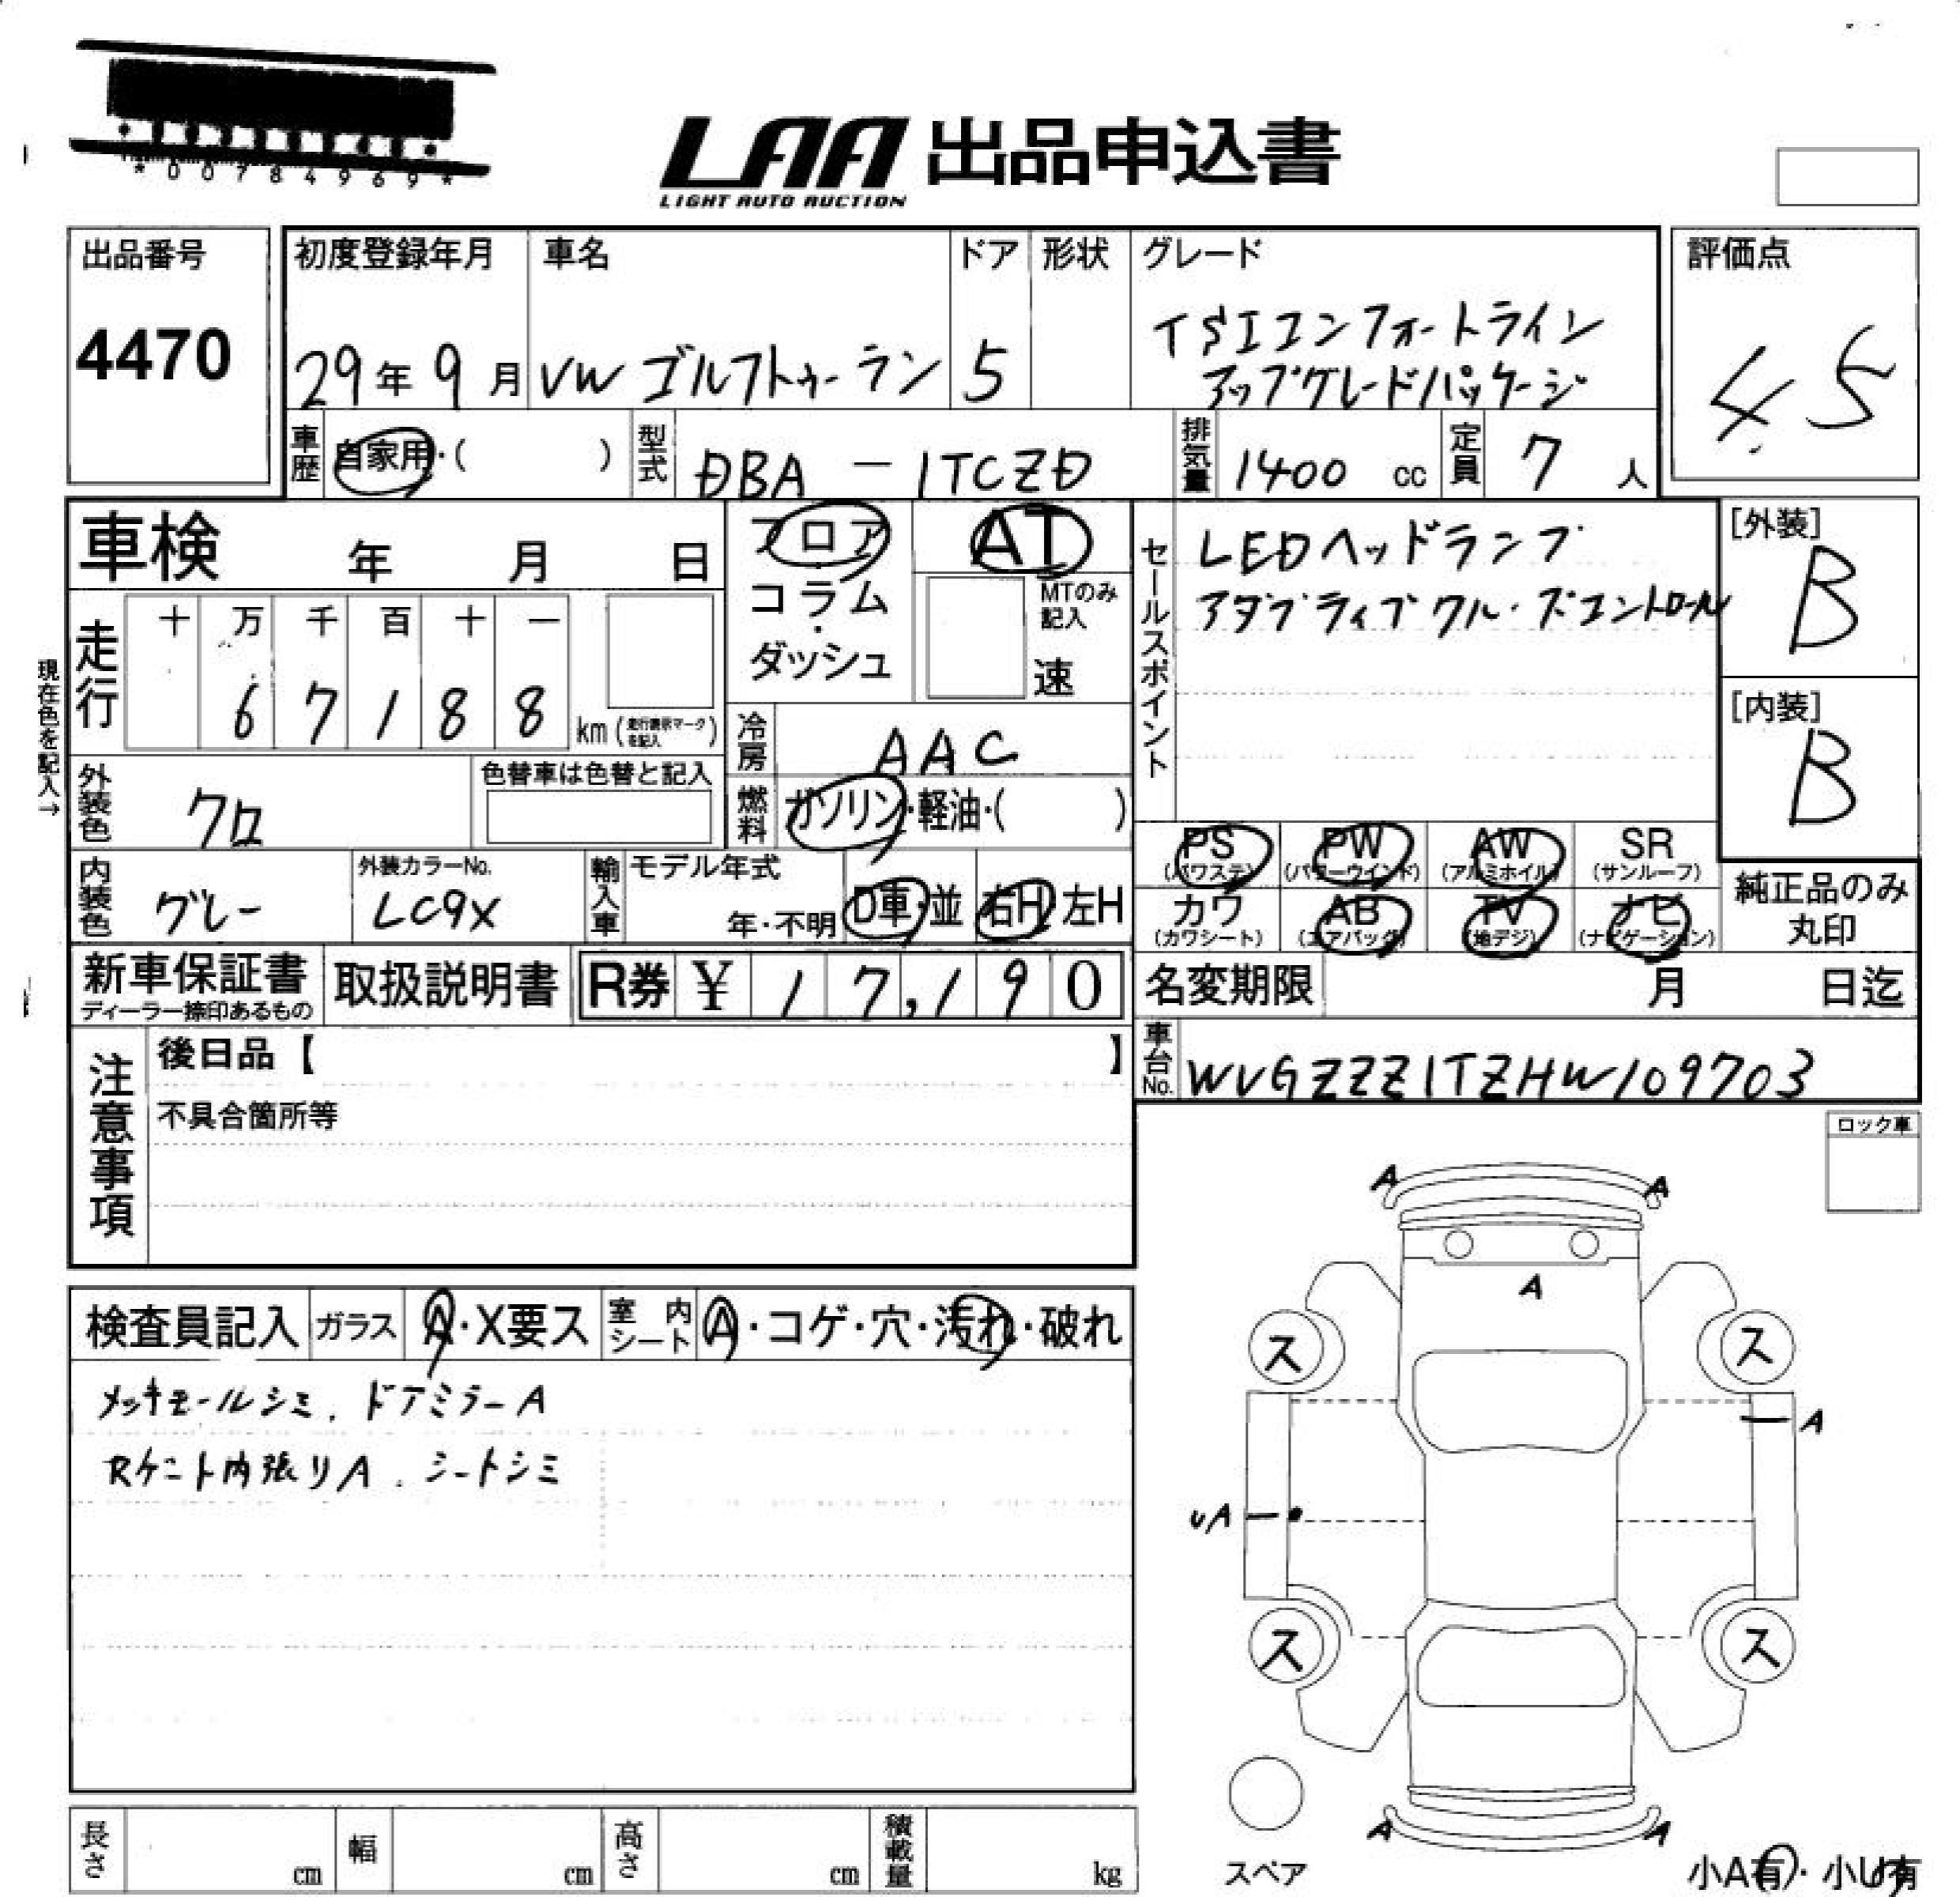 *00784969*
LAA 出品申込書
LIGHT AUTO AUCTION
出品番号
4470
初度登録年月
29年 9月
車名
VW ゴルフトゥーラン
ドア
5
形状
グレード
TSIコンフォートライン
アップグレードパッケージ
評価点
4.5
車歴
自家用・( )
型式
DBA-1TCZD
排気量
1400 cc
定員
7 人
車検 年 月 日
フロア
コラム
・
ダッシュ
AT
MTのみ
記入
速
セールスポイント
LEDヘッドランプ
アダプティブクルーズコントロール
[外装]
B
[内装]
B
現在色を記入→
走行
十 万 千 百 十 一
6 7 1 8 8
km (走行表示マークを記入)
冷房
AAC
燃料
ガソリン・軽油・( )
外装色
クロ
色替車は色替と記入
内装色
グレー
外装カラーNo.
LC9X
輸入車
モデル年式
年・不明
D車・並
右H 左H
PS PW AW SR
(パワステ) (パワーウインド) (アルミホイル) (サンルーフ)
カワ AB TV ナビ
(カワシート) (エアバッグ) (地デジ) (ナビゲーション)
純正品のみ
丸印
新車保証書
ディーラー捺印あるもの
取扱説明書
R券 ¥ 17,190
名変期限 月 日迄
車台No.
WVGZZZ1TZHW109703
注意事項
後日品【 】
不具合箇所等
ロック車
検査員記入
ガラス
A・X要ス
室内シート
A・コゲ・穴・汚れ・破れ
メッキモールシミ、ドアミラーA
Rゲート内張りA、シートシミ
A A
A
ス ス
A
UA
ス ス
A A
スペア
小A有・小U有
長さ cm
幅 cm
高さ cm
積載量 kg